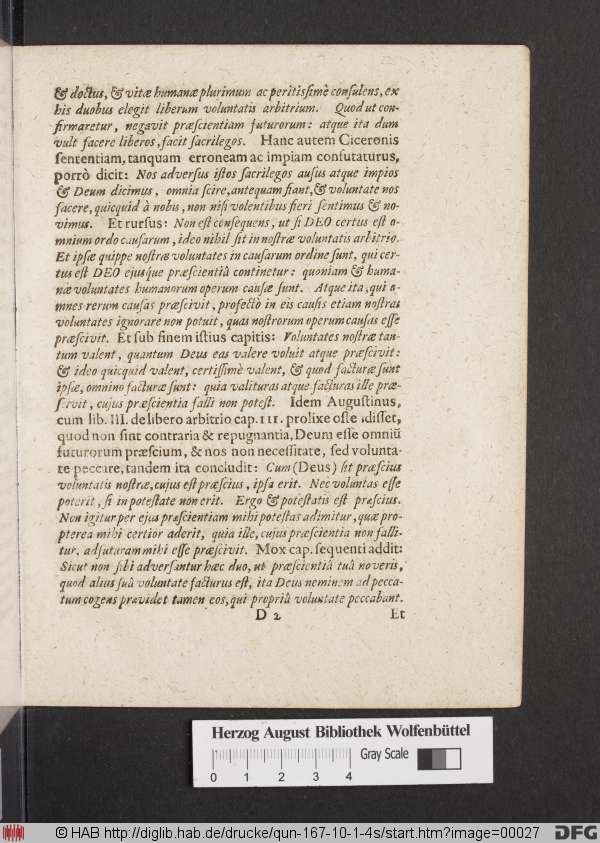 & doctus, & vitæ humanæ plurimum ac peritissimè consulens, ex
his duobus elegit liberum voluntatis arbitrium. Quod ut con-
firmaretur, negavit præscientiam futurorum: atque ita dum
vult facere liberos, facit sacrilegos. Hanc autem Ciceronis
sententiam, tanquam erroneam ac impiam confutaturus,
porrò dicit: Nos adversus istos sacrilegos ausus atque impios
& Deum dicimus, omnia scire, antequam fiant, & voluntate nos
facere, quicquid à nobis, non nisi volentibus fieri sentimus & no-
vimus. Et rursus: Non est consequens, ut si DEO certus est o-
mnium ordo causarum, ideo nihil sit in nostræ voluntatis arbitrio.
Et ipsæ quippe nostræ voluntates in causarum ordine sunt, qui cer-
tus est DEO ejusque præscientiâ continetur: quoniam & huma-
næ voluntates humanorum operum causæ sunt. Atque ita, qui o-
mnes rerum causas præscivit, profectò in eis causis etiam nostras
voluntates ignorare non potuit, quas nostrorum operum causas esse
præscivit. Et sub finem istius capitis: Voluntates nostræ tan-
tum valent, quantum Deus eas valere voluit atque præscivit:
& ideo quicquid valent, certissimè valent, & quod facturæ sunt
ipsæ, omnino facturæ sunt: quia valituras atque facturas ille præ-
scivit, cujus præscientia falli non potest. Idem Augustinus,
cum lib. III. de libero arbitrio cap. III. prolixe ostendisset,
quod non sint contraria & repugnantia, Deum esse omniũ
futurorum præscium, & nos non necessitate, sed volunta-
te peccare, tandem ita concludit: Cum (Deus) sit præscius
voluntatis nostræ, cujus est præscius, ipsa erit. Nec voluntas esse
poterit, si in potestate non erit. Ergo & potestatis est præscius.
Non igitur per ejus præscientiam mihi potestas adimitur, quæ pro-
pterea mihi certior aderit, quia ille, cujus præscientia non falli-
tur, adfuturam mihi esse præscivit. Mox cap. sequenti addit:
Sicut non sibi adversantur hæc duo, ut præscientiâ tuâ noveris,
quod alius suâ voluntate facturus est, ita Deus neminem ad pecca-
tum cogens prævidet tamen eos, qui propriâ voluntate peccabunt.
D 2 Et
Herzog August Bibliothek Wolfenbüttel
Gray Scale
0 1 2 3 4
© HAB http://diglib.hab.de/drucke/qun-167-10-1-4s/start.htm?image=00027
DFG